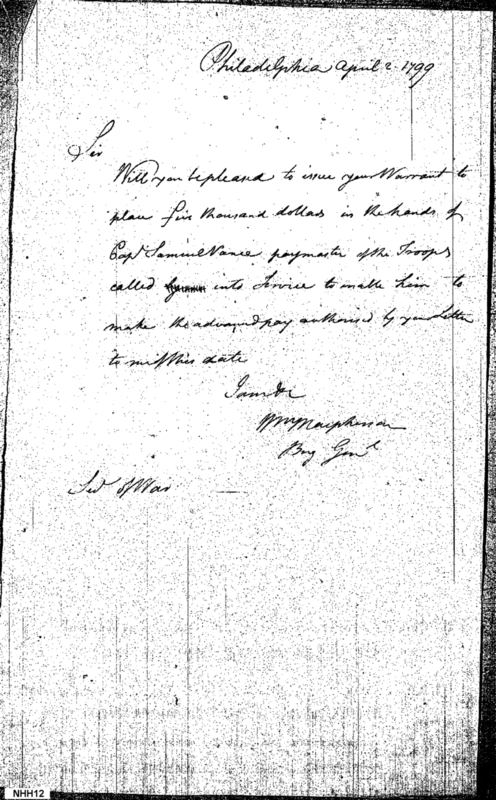 Philadelphia April 2 1799
Sir
Will you be pleased to issue your Warrant to
place five thousand dollars in the hands of
Capt Samuel Vance paymaster of the Troops
called into Service to enable him to
make the advanced pay authorised by your Letter
to me of this date
I am &c
Wm Macpherson
Brig Genl
Secy of War
NHH12